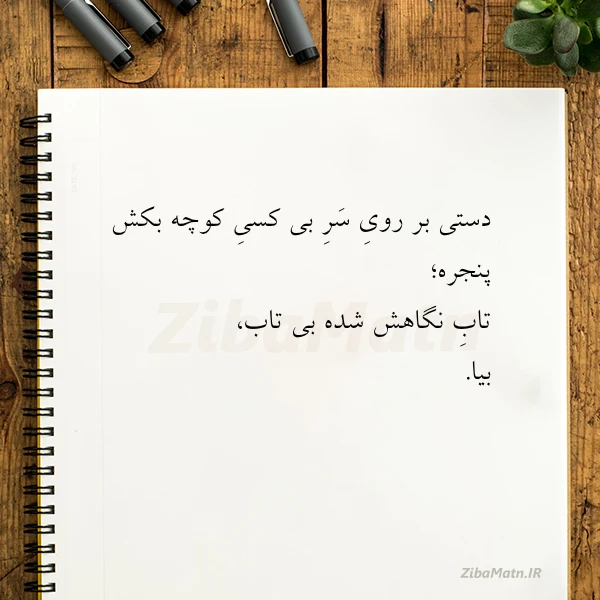 دستی بر رویِ سَرِ بی کسیِ کوچه بکش
پنجره؛
تابِ نگاهش شده بی تاب،
بیا.
ZibaMatn
ZibaMatn.IR